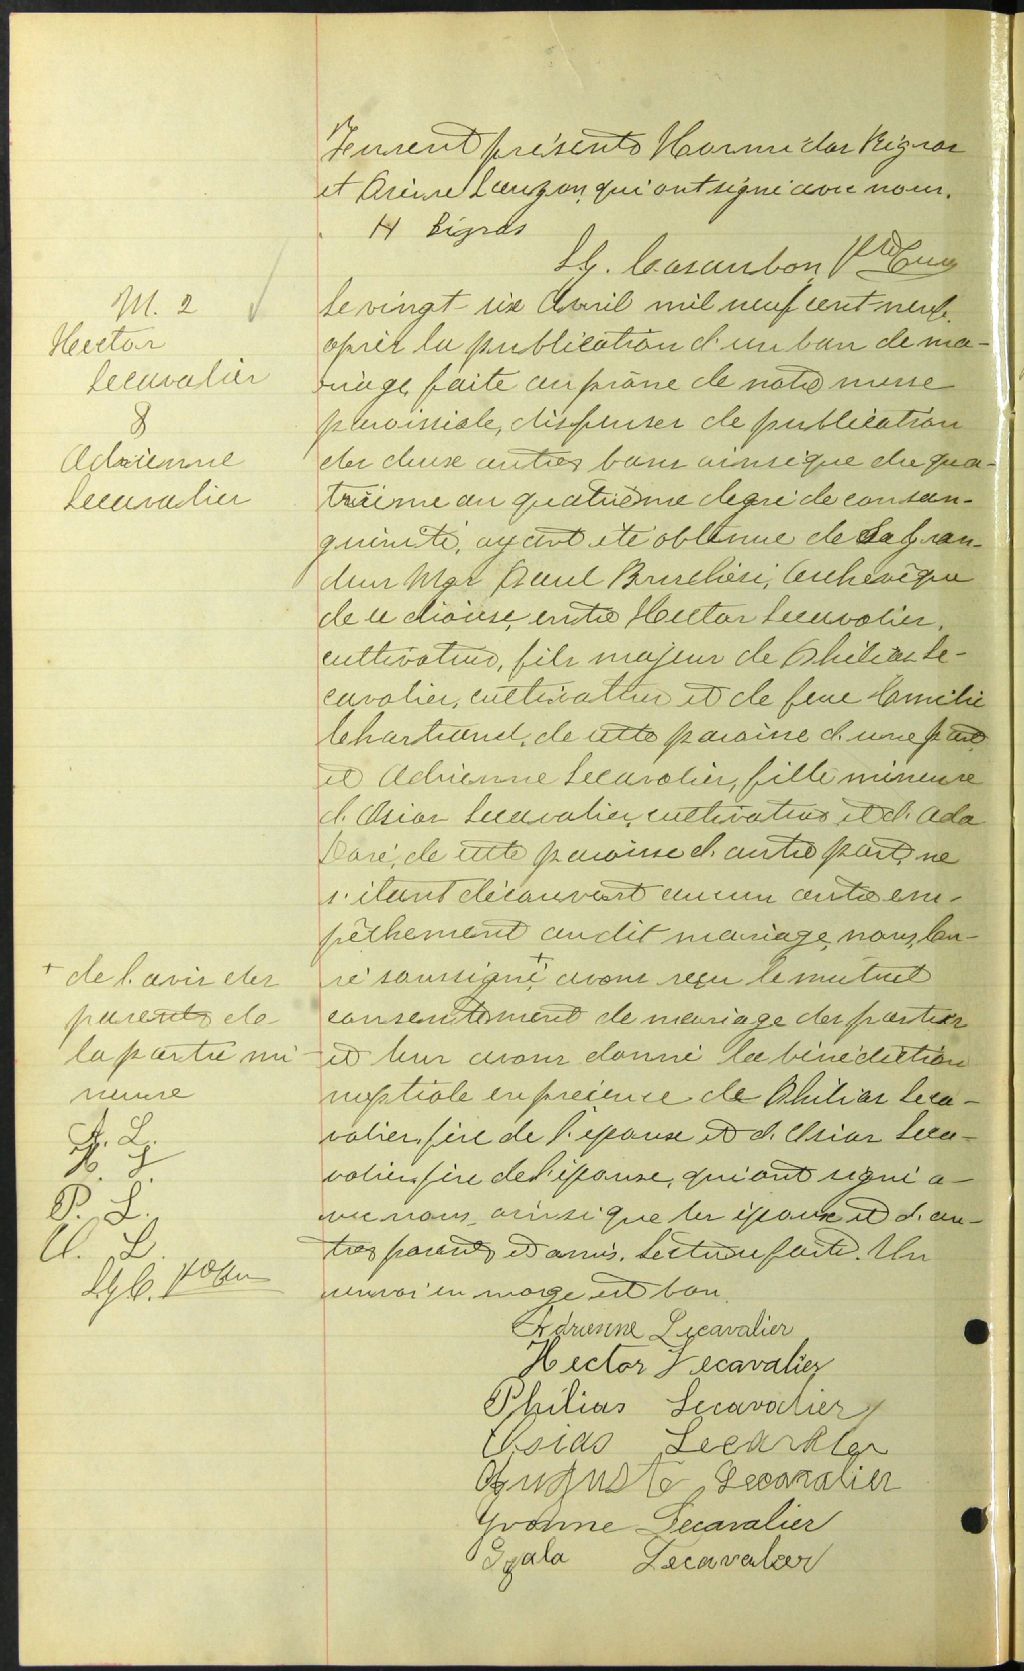 Furent présents Hormidas Bigras
et Arsène Lauzon, qui ont signé avec nous.
H Bigras
Ls. G. Casaubon, ptre Curé
M. 2
Hector
Lecavalier
&
Adrienne
Lecavalier
Le vingt-six avril mil neuf cent neuf,
après la publication d'un ban de ma-
riage, faite au prône de notre messe
paroissiale, dispenses de publication
des deux autres bans ainsi que du qua-
trième au quatrième degré de consan-
guinité, ayant été obtenue de Sa Gran-
deur Mgr Paul Bruchési, Archevêque
de ce diocèse, entre Hector Lecavalier,
cultivateur, fils majeur de Philias Le-
cavalier, cultivateur et de feue Emilie
Chartrand, de cette paroisse d'une part
et Adrienne Lecavalier, fille mineure
d'Osias Lecavalier, cultivateur et d'Ada
de cette paroisse d'autre part, ne
s'étant découvert aucun autre em-
pêchement audit mariage, nous, Cu-
ré soussigné, + avons reçu le mutuel
consentement de mariage des parties
et leur avons donné la bénédiction
nuptiale en présence de Philias Leca-
valier, père de l'époux et d'Osias Leca-
valier, père de l'épouse, qui ont signé a-
vec nous, ainsi que les époux et d'au-
tres parents et amis. Lecture faite. Un
renvoi en marge est bon.
+ de l'avis des
parents de
la partie mi
neure
A. L.
H. L.
P. L.
O. L.
Ls G C. ptre Cur
Adrienne Lecavalier
Hector Lecavalier
Philias Lecavalier
Osias Lecavalier
Auguste Lecavalier
Yvonne Lecavalier
Lecavalier